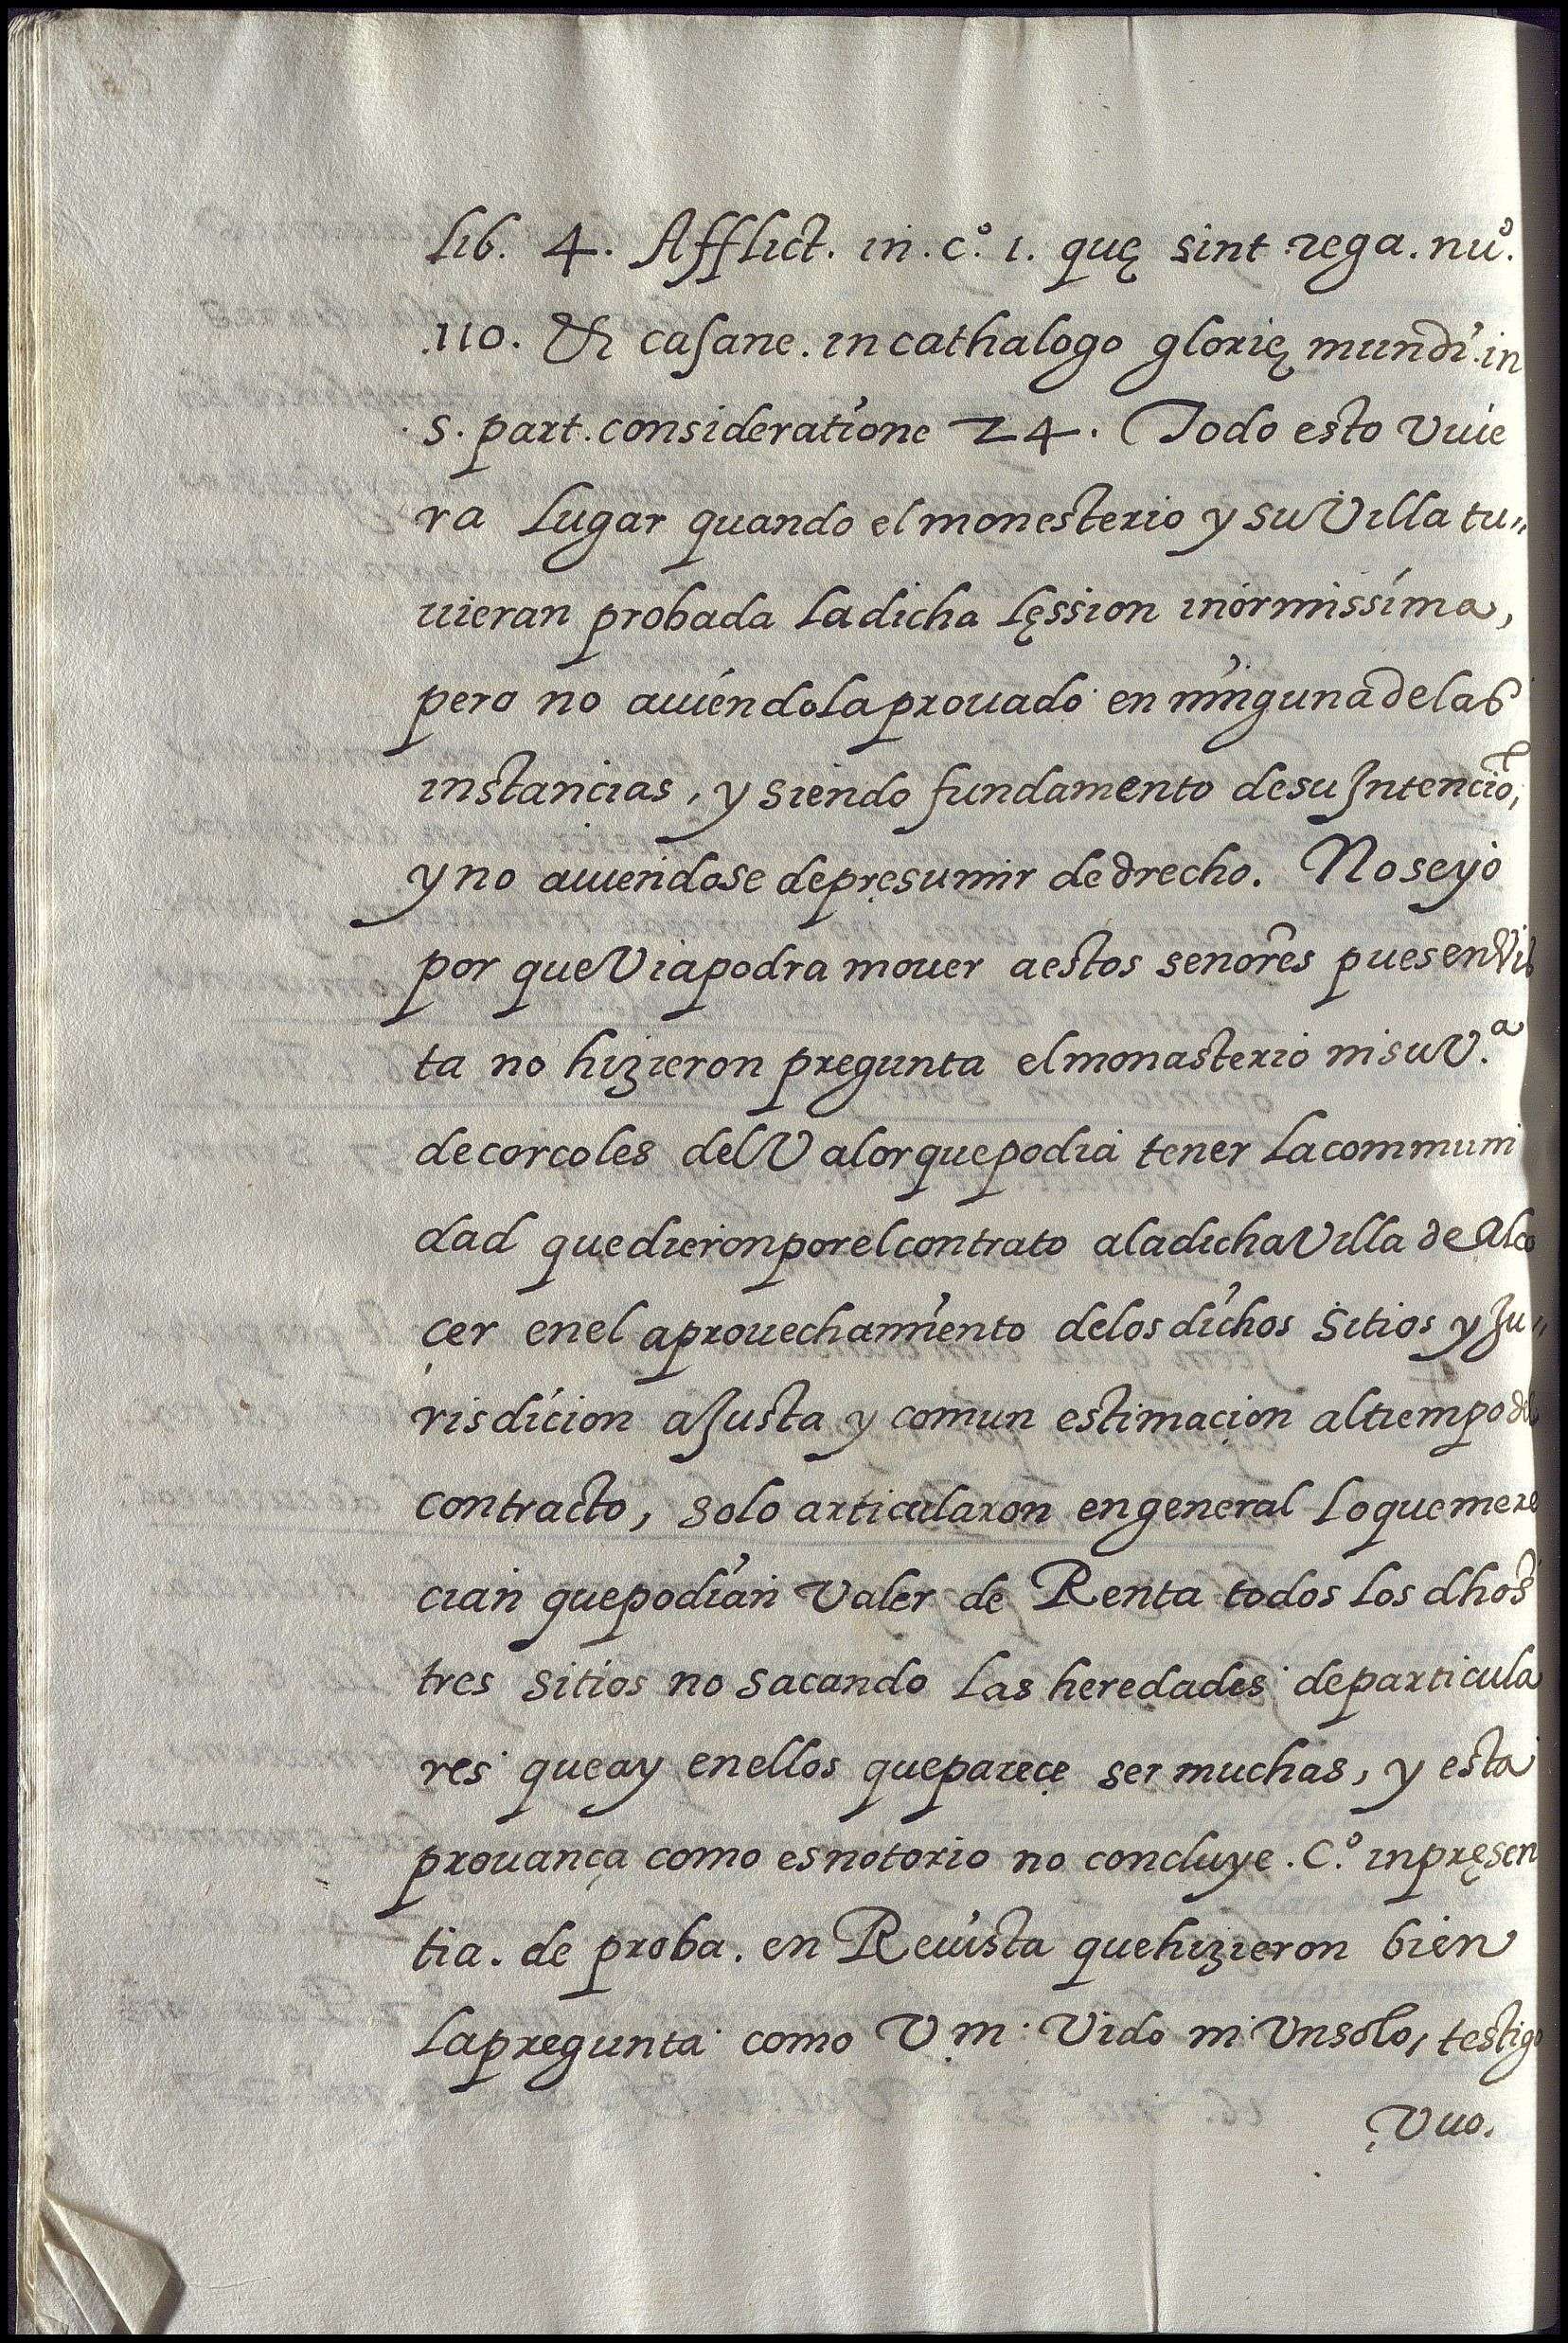 Lib. 4. Afflict. in. c.º 1. quę sint rega. nuº.
.110. Et casane. in cathalogo glorię mundi. in
.s. part. consideratione 24. Todo esto vuie
ra lugar quando el monesterio y su Villa tu,,
uieran probada la dicha lęssion inormissima,
pero no auiéndola prouado en ninguna de las
instancias, y siendo fundamento de su Intenciō,
y no auiendose de pręsumir de drecho. No se yo
por que Via podra mouer a estos senores pues en Vis
ta no hizieron pregunta el monasterio ni su V.ª
de corcoles del Valor que podia tener la communi
dad que dieron por el contrato a la dicha Villa de Alco
cer en el aprouechamiento de los dichos Sitios y Ju,,
risdicion a Justa y comun estimaçion al tiempo del
contracto, solo articularon en general lo que mere
cian que podian Valer de Renta todos los dhos
tres sitios no sacando las heredades de particula
res que ay en ellos que pareçe ser muchas, y esta
prouança como es notorio no concluye. C.º in pręsen
tia. de proba. en Reuista que hizieron bien
la pregunta como V.m. Vido ni Vn solo, testigo
Vuo.